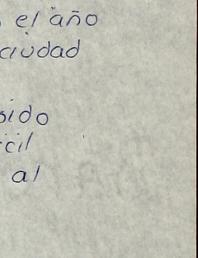 el año
ciudad
sido
cil
al